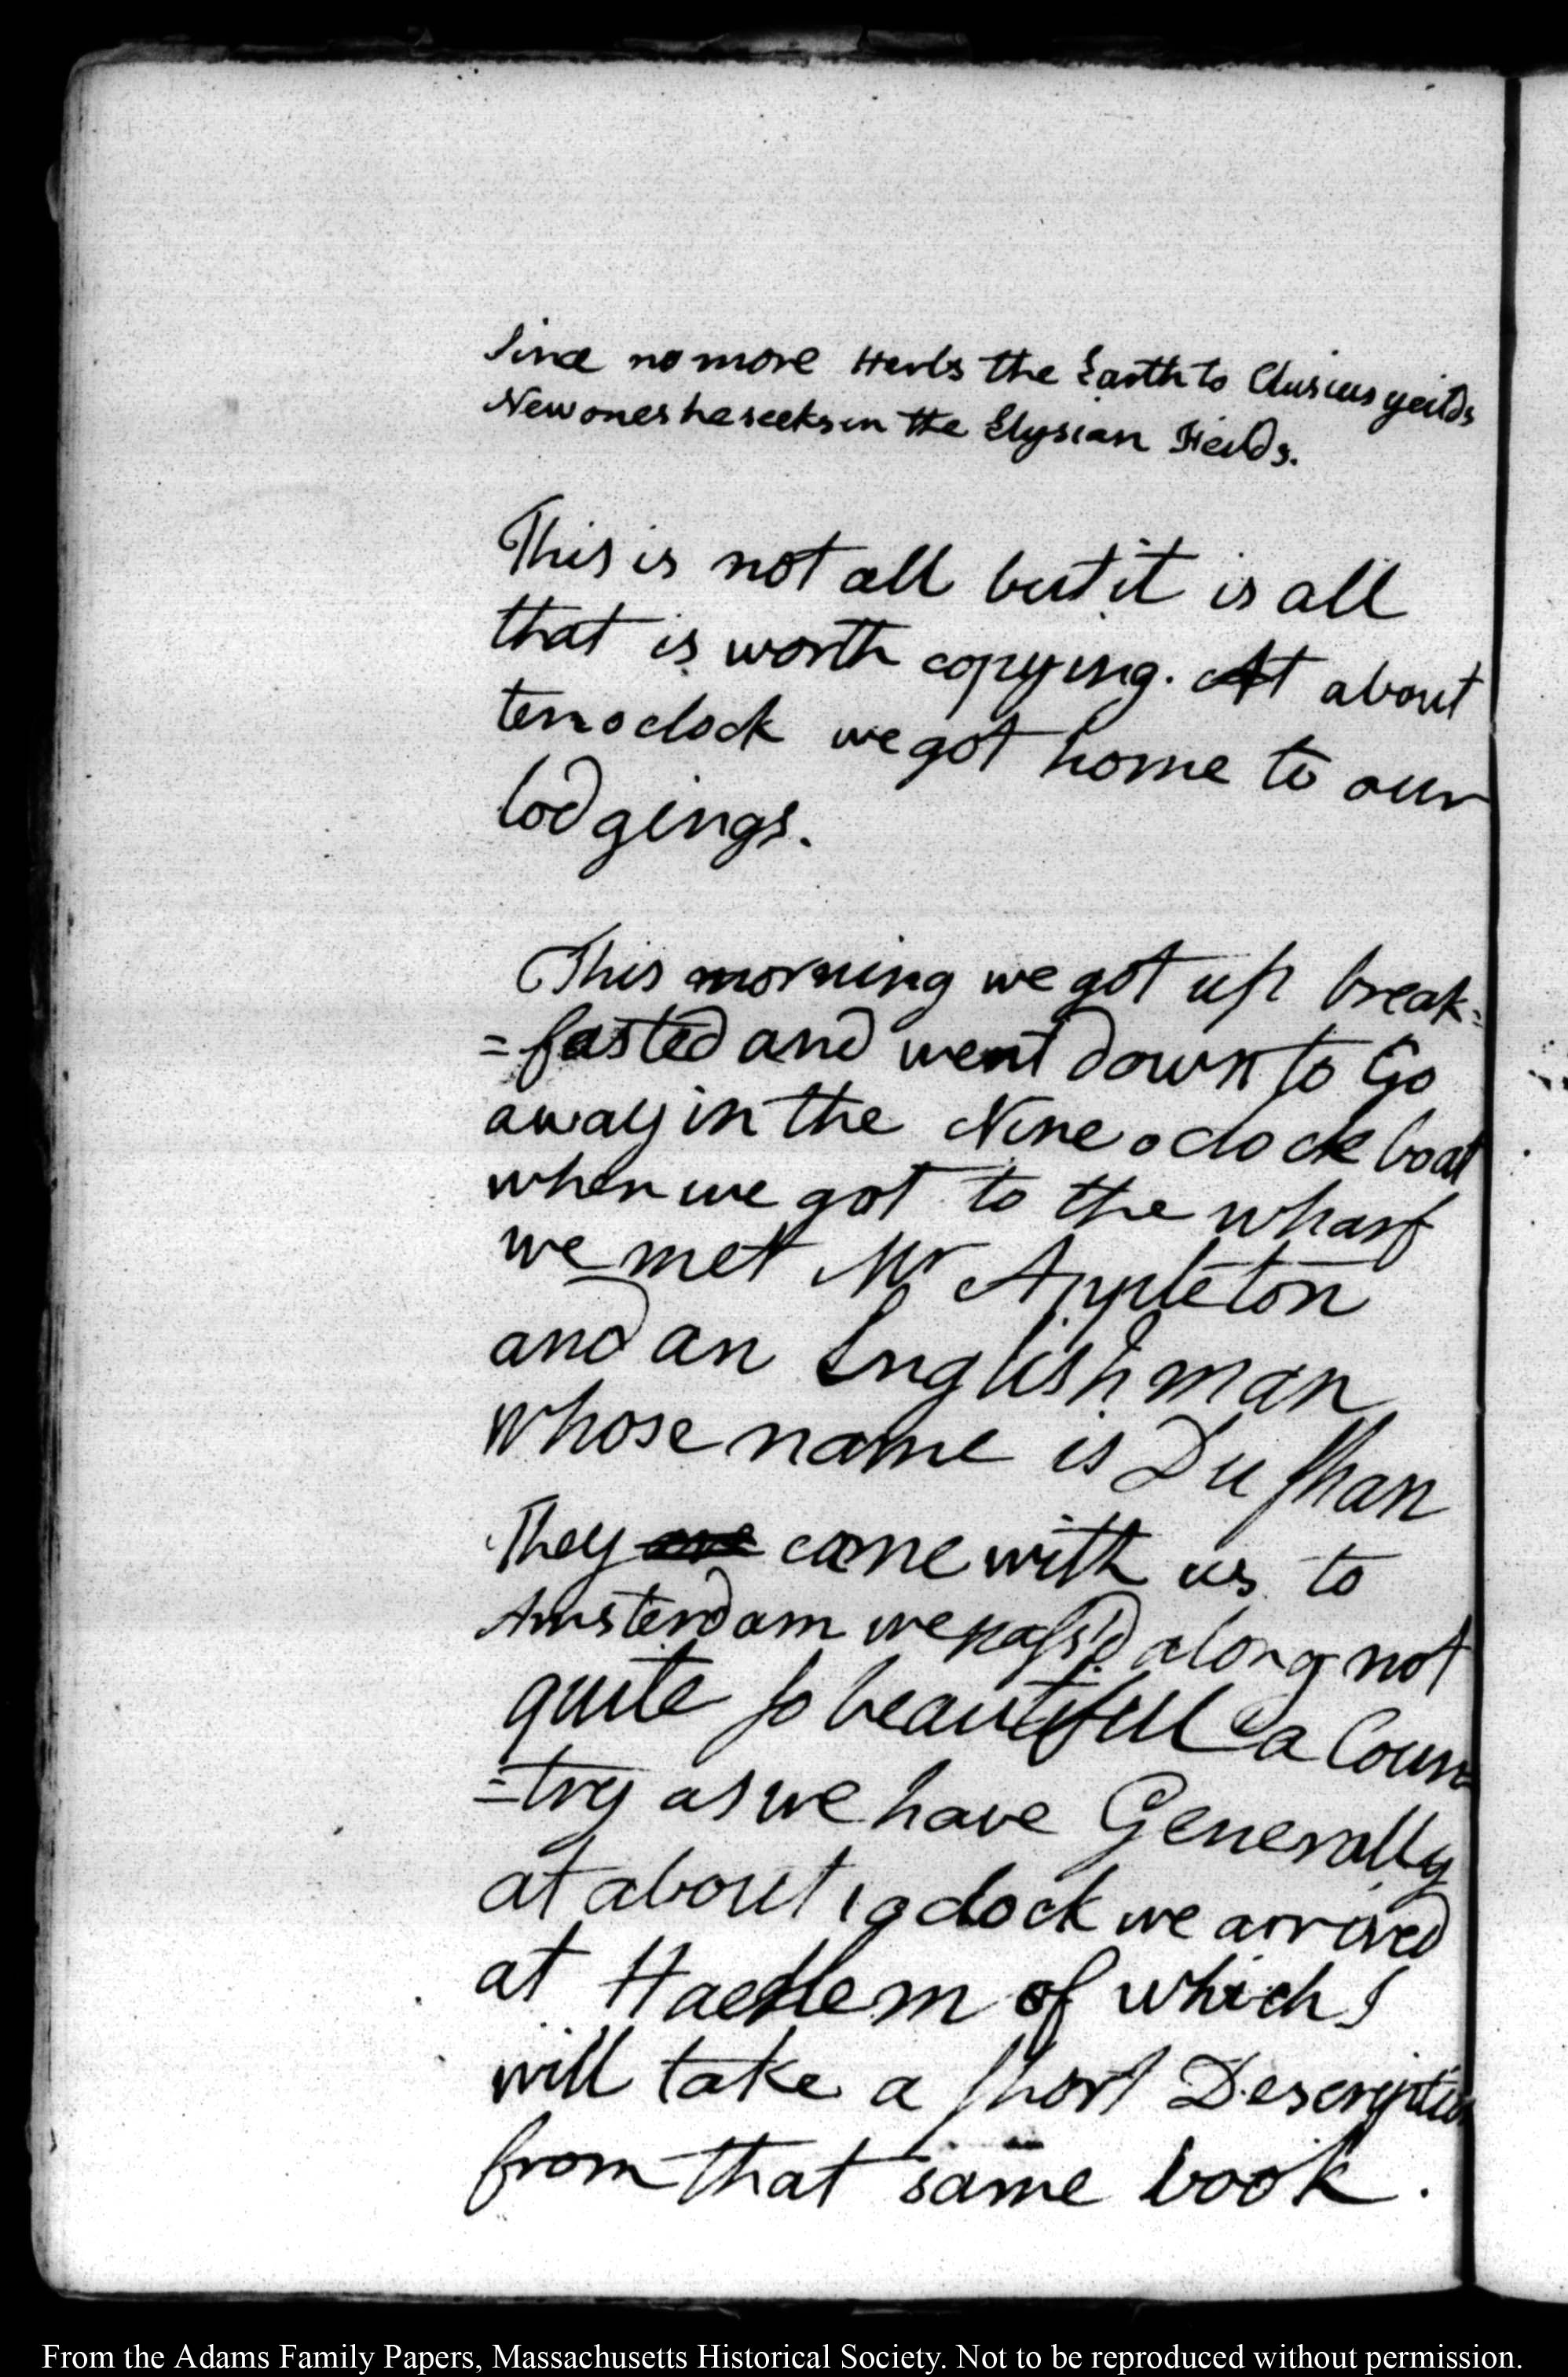 Since no more Herbs the Earth to Clusius yeilds
New ones he seeks in the Elysian Feilds.
This is not all but it is all
that is worth copying. At about
ten o clock we got home to our
lodgings.
This morning we got up break=
=fasted and went down to Go
away in the Nine o clock boat
when we got to the wharf
we met Mr Appleton
and an Englishman
whose name is Dushan
They are came with us to
Amsterdam we pass'd along not
quite so beautiful a Coun=
=try as we have Generally
at about 1 o clock we arrived
at Haerlem of which I
will take a short Description
from that same book.
From the Adams Family Papers, Massachusetts Historical Society. Not to be reproduced without permission.